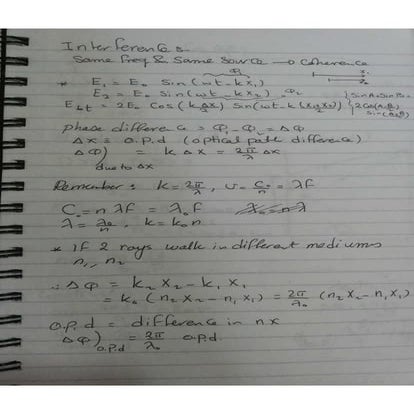 Interference:
Same freq & Same source → Coherence
* E₁ = E₀ Sin(ωt - kx₁) φ₁
E₂ = E₀ Sin(ωt - kx₂) = φ₂
E_tot = 2E₀ Cos(k Δx/2) Sin(ωt - k(x₁+x₂)/2)
x₁
x₂
SinA + SinB =
2Cos(A-B/2)
Sin(A+B/2)
phase difference = φ₁ - φ₂ = Δφ
Δx = o.p.d (optical path difference)
Δφ) = kΔx = 2π/λ Δx
due to Δx
Remember: k = 2π/λ , υ = C₀/n = λf
C₀ = n λf = λ₀f
λ = λ₀/n , k = k₀n
* If 2 rays walk in different mediums
n₁, n₂
∴ Δφ = k₂x₂ - k₁x₁
= k₀(n₂x₂ - n₁x₁) = 2π/λ₀ (n₂x₂ - n₁x₁)
o.p.d = difference in nx
Δφ)o.p.d = 2π/λ₀ o.p.d.